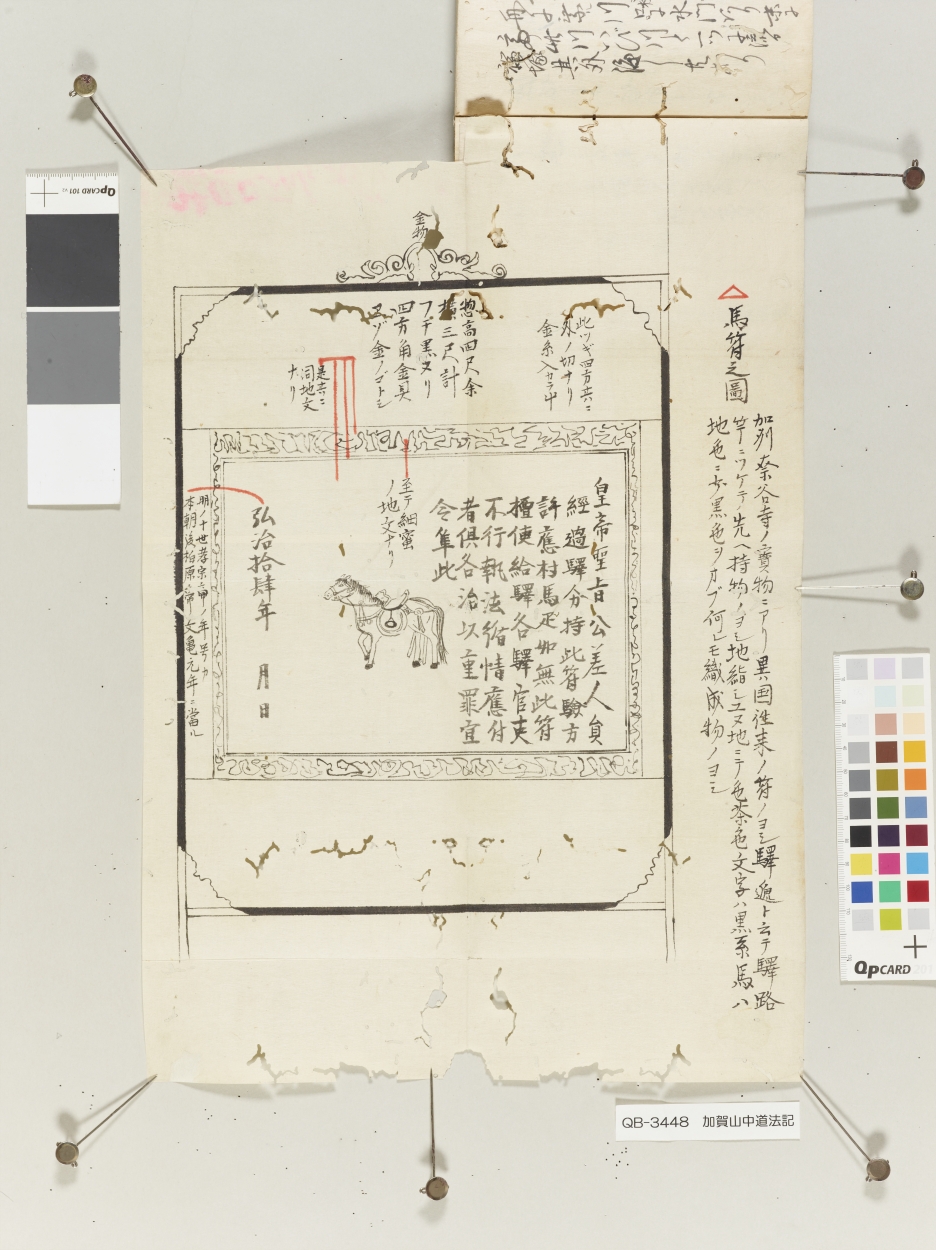 馬符之圖
加列奈谷寺ノ寶物ニアリ異国往来ノ符ノヨシ驛逓ト云テ驛路
竿ニツケテ先ヘ持物ノヨシ地絹シユヌ地ニテ色茶色文字ハ黒糸馬ハ
地色ニ少黒色ヲオブ何レモ織成物ノヨシ
金物
此ツギ四方共ニ
外ノ切ナリ
金糸入カラ草
惣高四尺余
横三尺計
フチ黒ヌリ
四方角金具
ヱヅノゴトシ
是共ニ
同地文
ナリ
皇帝聖旨公差人員
經過驛分持此符驗方
許應村馬疋如無此符
擅便給驛各驛官吏
不行執法循情應付
者俱各治以重罪宜
令準此
至テ細蜜
ノ地文ナリ
弘治拾肆年
月
日
明ノ十世孝宗帝ノ年号カ
本朝後柏原帝ノ文亀元年ニ當ル
QPCARD 101 v2
QPCARD 201
QB-3448 加賀山中道法記